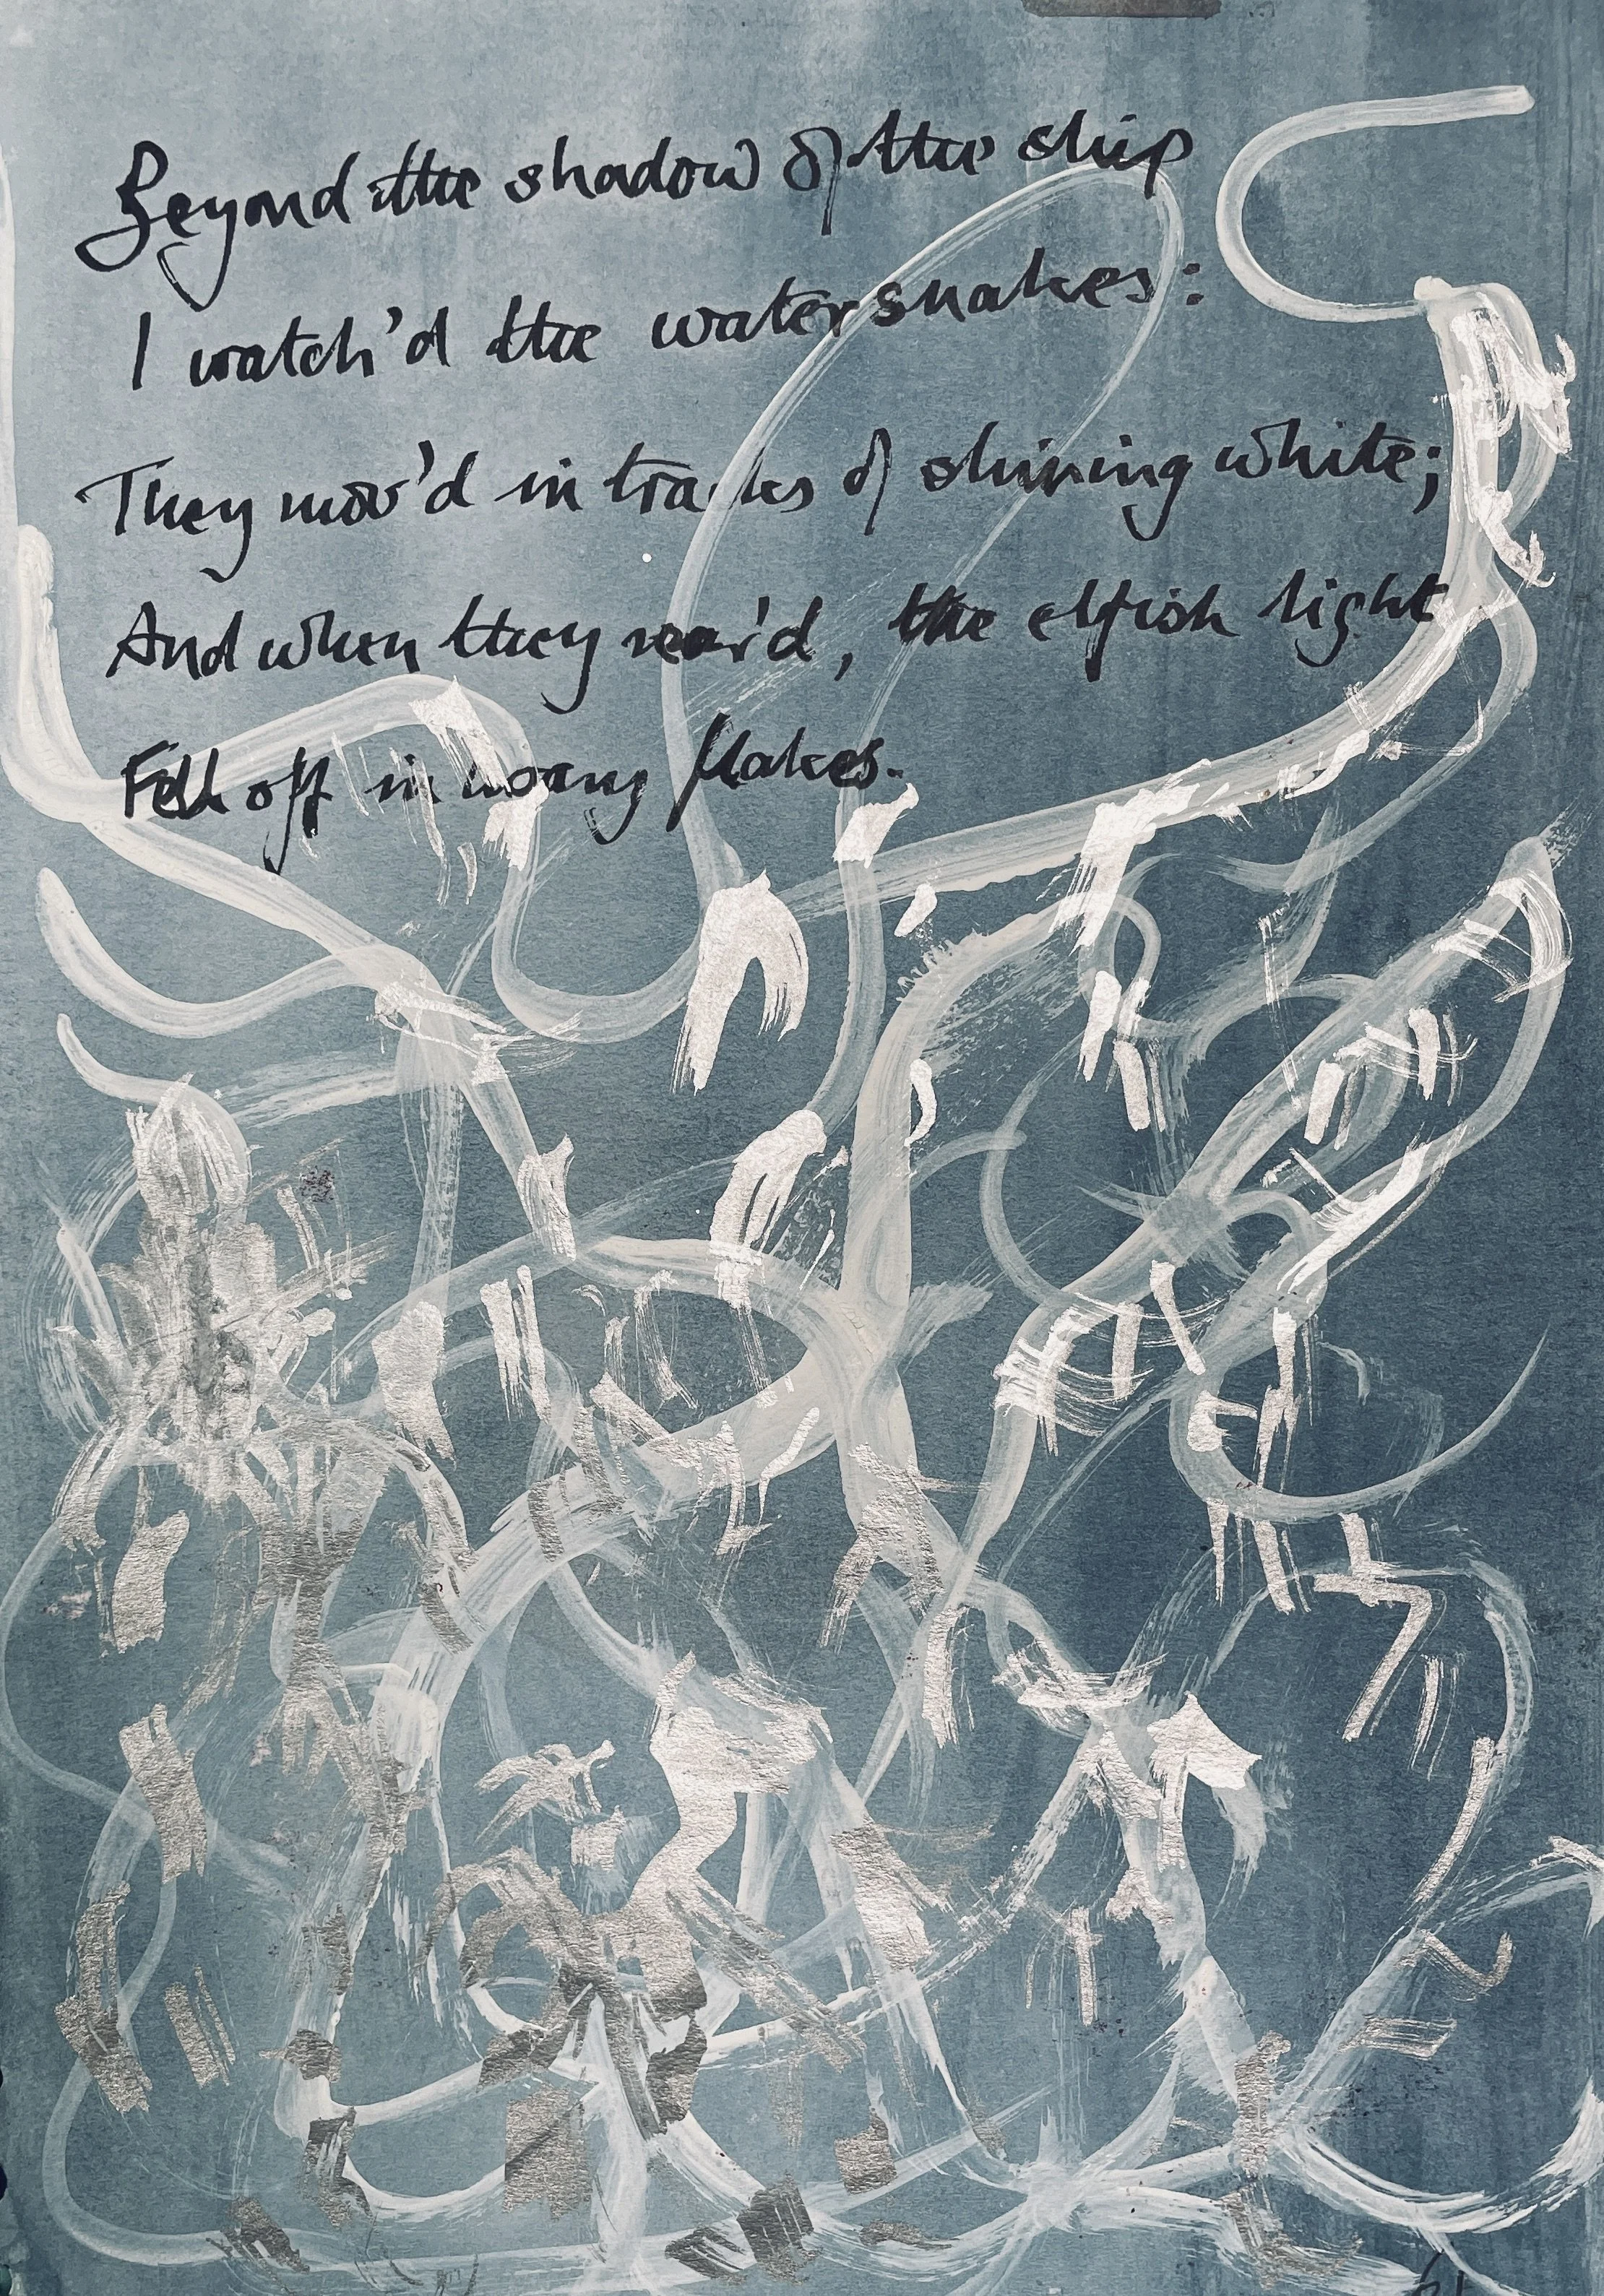 Beyond the shadow of the ship
I watch'd the water snakes:
They mov'd in tracks of shining white;
And when they rear'd, the elfish light
Fell off in hoary flakes.